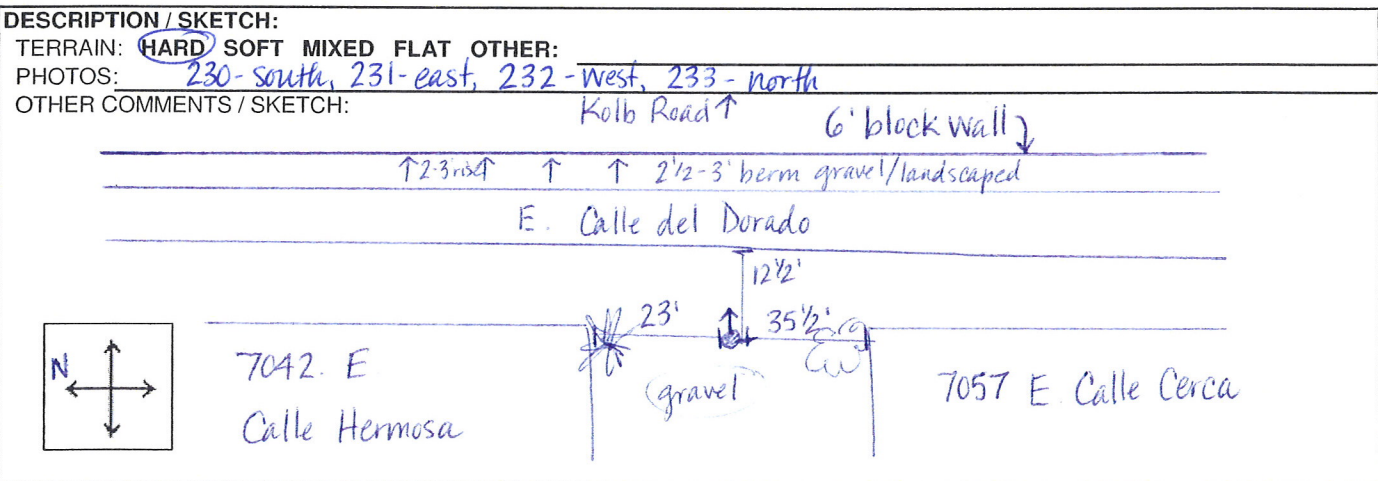 DESCRIPTION / SKETCH:
TERRAIN: HARD SOFT MIXED FLAT OTHER:
PHOTOS: 230-south, 231-east, 232-west, 233-north
OTHER COMMENTS / SKETCH:
Kolb Road ↑
6' block wall
↑ 2-3' rise ↑ ↑ ↑ 2 1/2-3' berm gravel/landscaped
E. Calle del Dorado
12 1/2'
23' 35 1/2'
N
7042. E
Calle Hermosa
gravel
7057 E. Calle Cerca